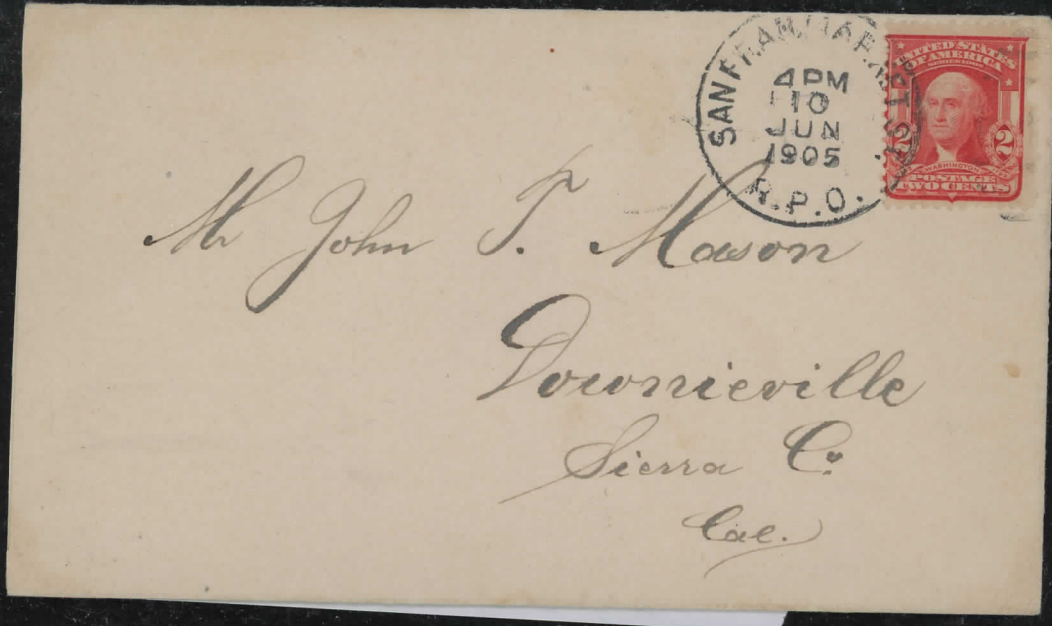 SAN FRAN.
4 PM
10
JUN
1905
R.P.O.
UNITED STATES
OF AMERICA
SERIES 1902
2 2
WASHINGTON
POSTAGE
TWO CENTS
Mr John T. Mason
Downieville
Sierra Co
Cal.